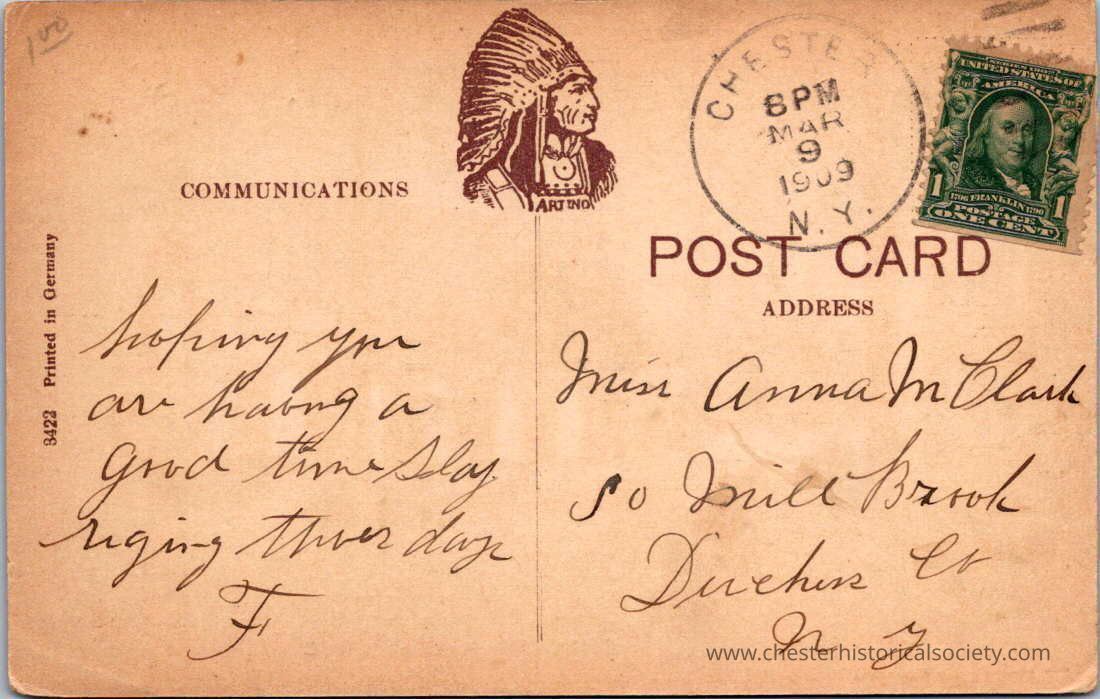 1 00
COMMUNICATIONS
ARTINO
CHESTER
8 PM
MAR
9
1909
N. Y.
SERIES 1902
UNITED STATES OF
AMERICA
1 1
1706 FRANKLIN 1790
POSTAGE
ONE CENT
POST CARD
ADDRESS
3422 Printed in Germany
hoping you
are having a
good time Slay
riging thees days
F
Miss Anna M Clark
So Mill Brook
Duchess Co
N Y
www.chesterhistoricalsociety.com